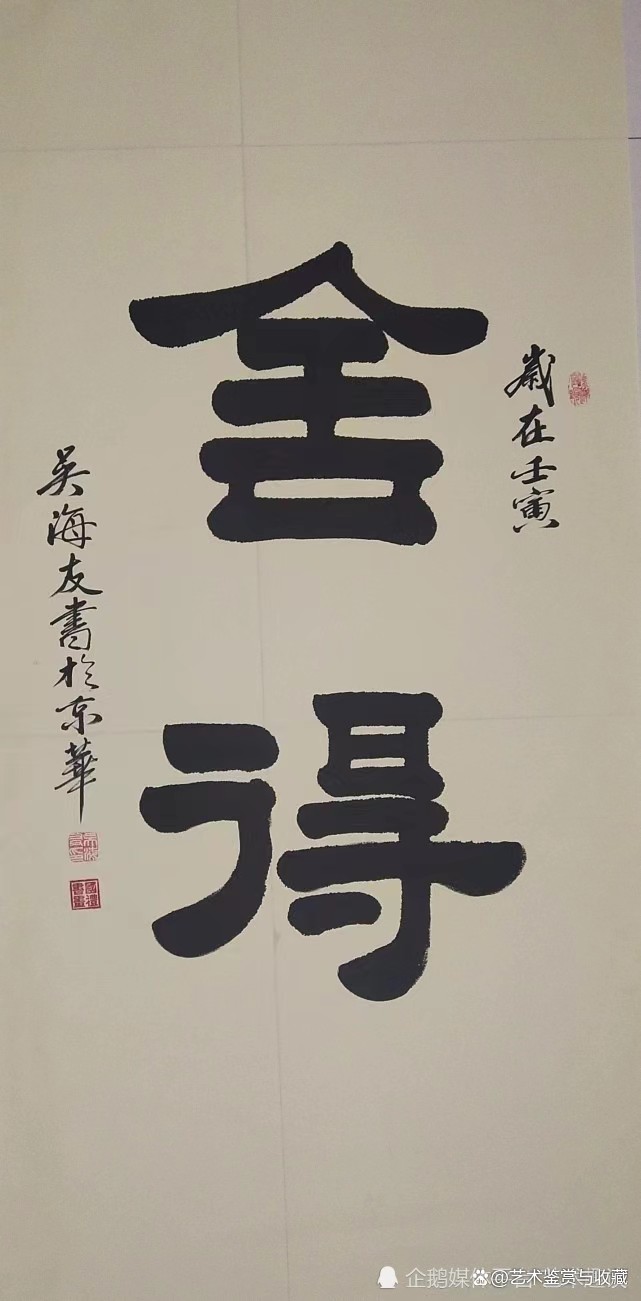 歲在壬寅
舍得
吳海友書於京華
國禮書畫
企鹅媒体平台
@艺术鉴赏与收藏